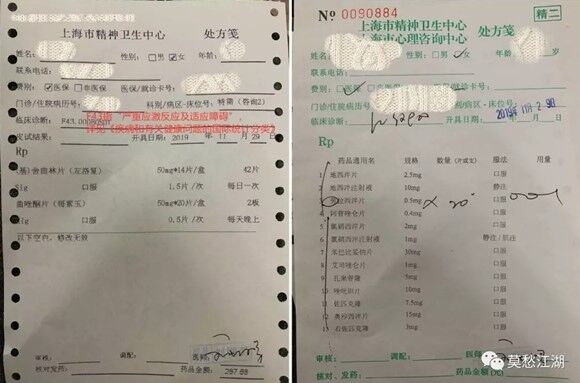 上海市精神卫生中心 处方笺
姓名: 性别: □男 ☑女 年龄:
联系电话:
费别: ☑医保 □非医保 医保/就诊卡号:
门诊/住院病历号: 科别/病区-床位号: 特需(咨询2)
临床诊断: F43.
F43指“严重应激反应及适应障碍”,
详见《疾病和有关健康问题的国际统计分类》
皮试结果: 开具日期: 2019 年 11 月 29 日
Rp
(基)舍曲林片(左洛复) 50mg*14片/盒 42片
Sig 口服 1.5片/次 每日一次
曲唑酮片(每素玉) 50mg*20片/盒 2板
Sig 口服 0.5片/次 每天晚上
以下空白,修改无效
审核: 调配: 医师:
核对发药: 药品金额: 287.98
No 0090884 精二
上海市精神卫生中心 处方笺
上海市心理咨询中心
姓名: 性别: □男 年龄: 岁
联系电话:
费别: 医保/就诊卡号:
门诊/住院病历号: 科别/病区-床位号:
临床诊断: 开具日期: 2019. 11月2 9日
Rp
药品通用名 规格 数量(片或支) 服法 用量
1 地西泮片 2.5mg 口服
2 地西泮注射液 10mg 静注
拉西泮片 0.5mg × 20 口服
4 阿普唑仑片 0.4mg 口服
5 氯硝西泮片 2mg 口服
6 氯硝西泮注射液 1mg 静注/肌注
7 苯巴比妥钠片 30mg 口服
8 艾司唑仑片 1mg 口服
9 扎来普隆 5mg 口服
10 唑吡坦片 10mg 口服
11 佐匹克隆 7.5mg 口服
12 奥沙西泮片 15mg 口服
13 右佐匹克隆 3mg 口服
审核: 调配: 医师:
核对、发药: 药品金额(元)
莫愁江湖